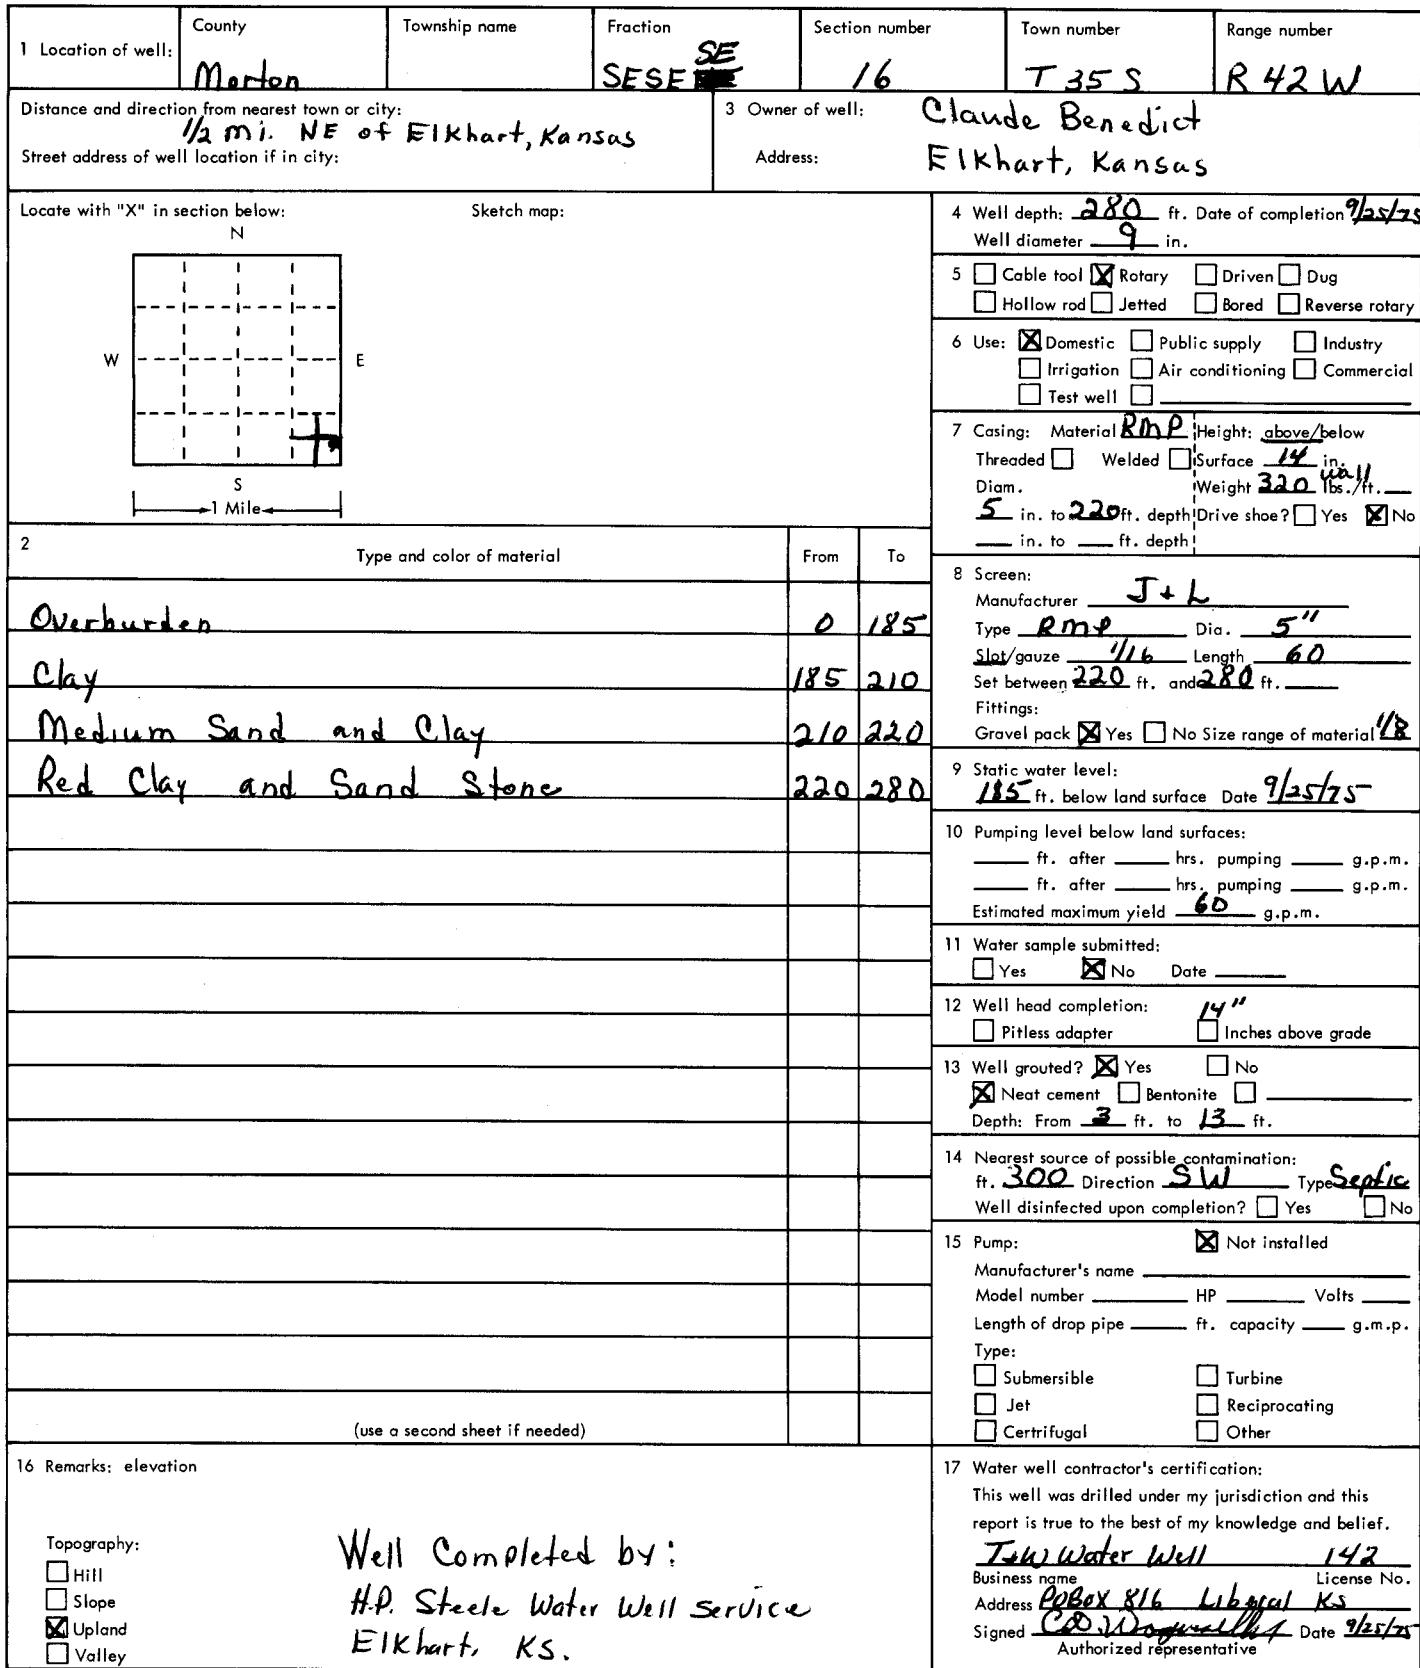 1 Location of well: County Morton Township name Fraction SESE SE Section number 16 Town number T 35 S Range number R 42 W
Distance and direction from nearest town or city: 1/2 mi. NE of Elkhart, Kansas
Street address of well location if in city:
3 Owner of well: Claude Benedict
Address: Elkhart, Kansas
Locate with "X" in section below: Sketch map:
N
W E
S
1 Mile
2 Type and color of material From To
Overburden 0 185
Clay 185 210
Medium Sand and Clay 210 220
Red Clay and Sand Stone 220 280
(use a second sheet if needed)
4 Well depth: 280 ft. Date of completion 9/25/75
Well diameter 9 in.
5 Cable tool Rotary Driven Dug
Hollow rod Jetted Bored Reverse rotary
6 Use: Domestic Public supply Industry
Irrigation Air conditioning Commercial
Test well
7 Casing: Material RMP Height: above/below
Threaded Welded Surface 14 in.
Diam. Weight 320 wall lbs./ft.
5 in. to 220 ft. depth Drive shoe? Yes No
in. to ft. depth
8 Screen:
Manufacturer J + L
Type RMP Dia. 5"
Slot/gauze 1/16 Length 60
Set between 220 ft. and 280 ft.
Fittings:
Gravel pack Yes No Size range of material 1/8
9 Static water level:
185 ft. below land surface Date 9/25/75
10 Pumping level below land surfaces:
ft. after hrs. pumping g.p.m.
ft. after hrs. pumping g.p.m.
Estimated maximum yield 60 g.p.m.
11 Water sample submitted:
Yes No Date
12 Well head completion: 14"
Pitless adapter Inches above grade
13 Well grouted? Yes No
Neat cement Bentonite
Depth: From 3 ft. to 13 ft.
14 Nearest source of possible contamination:
ft. 300 Direction SW Type Septic
Well disinfected upon completion? Yes No
15 Pump: Not installed
Manufacturer's name
Model number HP Volts
Length of drop pipe ft. capacity g.m.p.
Type:
Submersible Turbine
Jet Reciprocating
Certrifugal Other
16 Remarks: elevation
Topography:
Hill
Slope
Upland
Valley
Well Completed by:
H.P. Steele Water Well Service
Elkhart, KS.
17 Water well contractor's certification:
This well was drilled under my jurisdiction and this
report is true to the best of my knowledge and belief.
T+W Water Well 142
Business name License No.
Address PO BOX 816 Liberal KS
Signed Date 9/25/75
Authorized representative